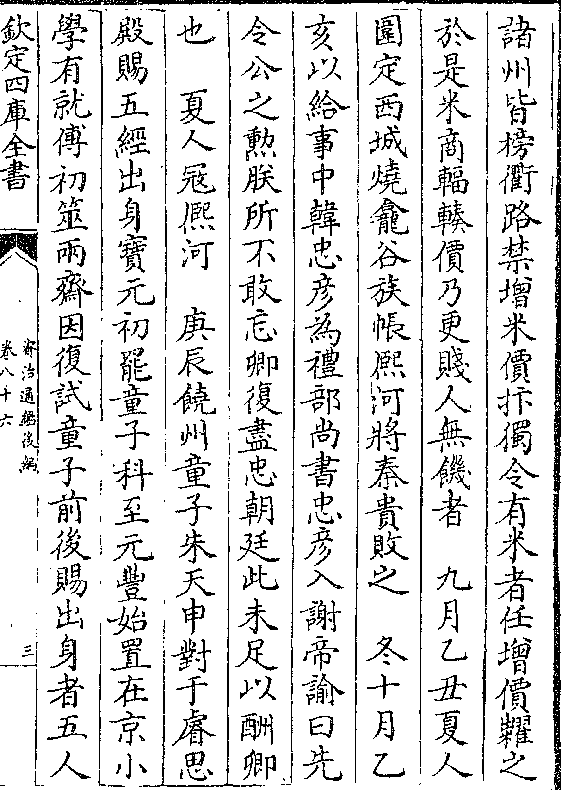 諸州皆榜衢路禁增米價抃獨令有米者任增價糶之
於是米商輻輳價乃更賤人無饑者　九月乙丑夏人
圍定西城燒龕谷族帳熈河將秦貴敗之　冬十月乙
亥以給事中韓忠彦為禮部尚書忠彦入謝帝諭曰先
令公之勲朕所不敢忘卿復盡忠朝廷此未足以酬卿
也　夏人寇熈河　庚辰饒州童子朱天申對于睿思
殿賜五經出身寶元初罷童子科至元豐始置在京小
學有就傅初筮兩齋因復試童子前後賜出身者五人
欽定四庫全書
資治通鑑後編
卷八十六
三